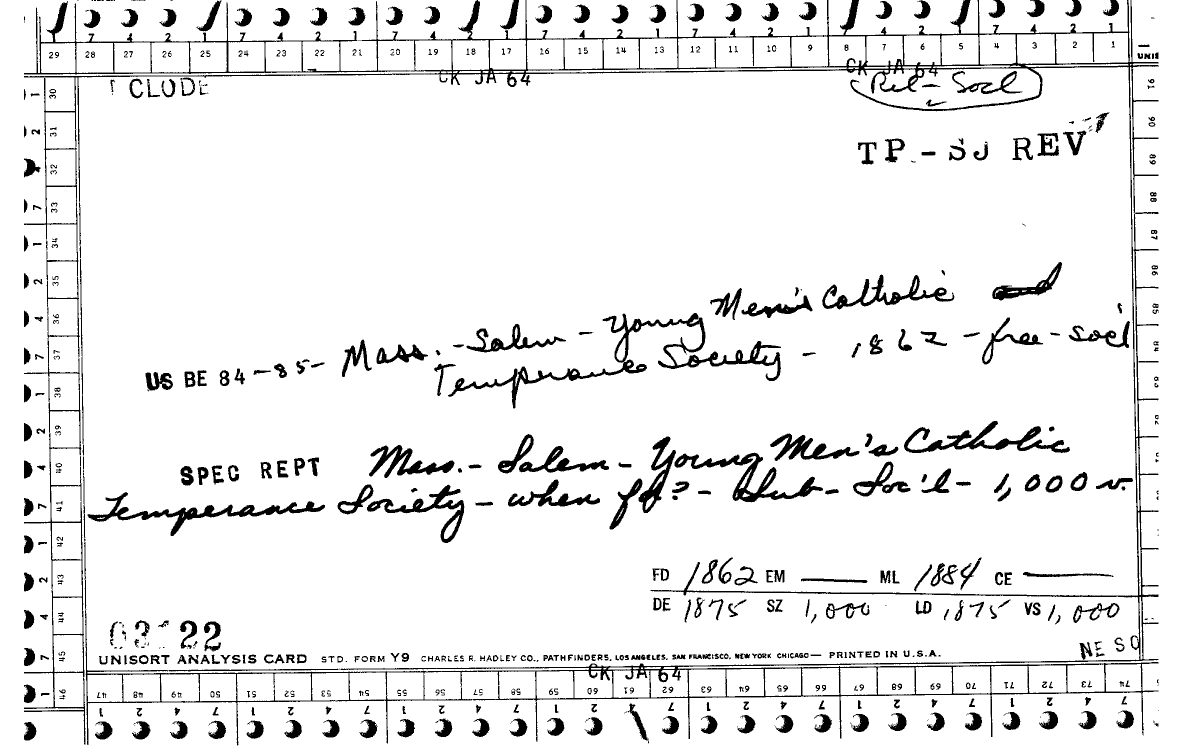 1 7 4 2 1 7 4 2 1 7 4 2 1 7 4 2 1 7 4 2 1 7 4 2 1 7 4 2 1
29 28 27 26 25 24 23 22 21 20 19 18 17 16 15 14 13 12 11 10 9 8 7 6 5 4 3 2 1
CLODE CK JA 64 CK JA 64
Rel - Socl
TP - SJ REV
US BE 84-85- Mass. - Salem - Young Men's Catholic
Temperance Society - 1862 - free - soc'l
SPEC REPT Mass. - Salem - Young Men's Catholic
Temperance Society - when fd? - Sub - Soc'l - 1,000 v.
FD 1862 EM ——— ML 1884 CE ———
DE 1875 SZ 1,000 LD 1875 VS 1,000
UNISORT ANALYSIS CARD STD. FORM Y9 CHARLES R. HADLEY CO., PATHFINDERS, LOS ANGELES, SAN FRANCISCO, NEW YORK CHICAGO — PRINTED IN U.S.A.
NE SO
CK JA 64
47 48 49 50 51 52 53 54 55 56 57 58 59 60 61 62 63 64 65 66 67 68 69 70 71 72 73 74
1 2 4 7 1 2 4 7 1 2 4 7 1 2 4 7 1 2 4 7 1 2 4 7 1 2 4 7